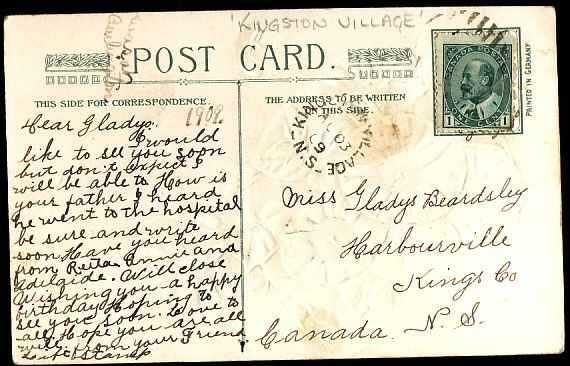 'KINGSTON VILLAGE'
POST CARD.
THIS SIDE FOR CORRESPONDENCE.
THE ADDRESS TO BE WRITTEN
ON THIS SIDE.
1909.
Dear Gladys.
I would
like to see you soon
but don't expect I
will be able to How is
your father I heard
he went to the hospital
be sure and write
soon Have you heard
from Reita Annie and
Adelaide. Will close
Wishing you a happy
birthday Hoping to
see you soon. Love to
all Hope you are all
well. from your Friend
VILLAGE - N.S.
CANADA POSTAGE
1 1
PRINTED IN GERMANY
Miss Gladys Beardsley
Harbourville
Kings Co
Canada. N. S.